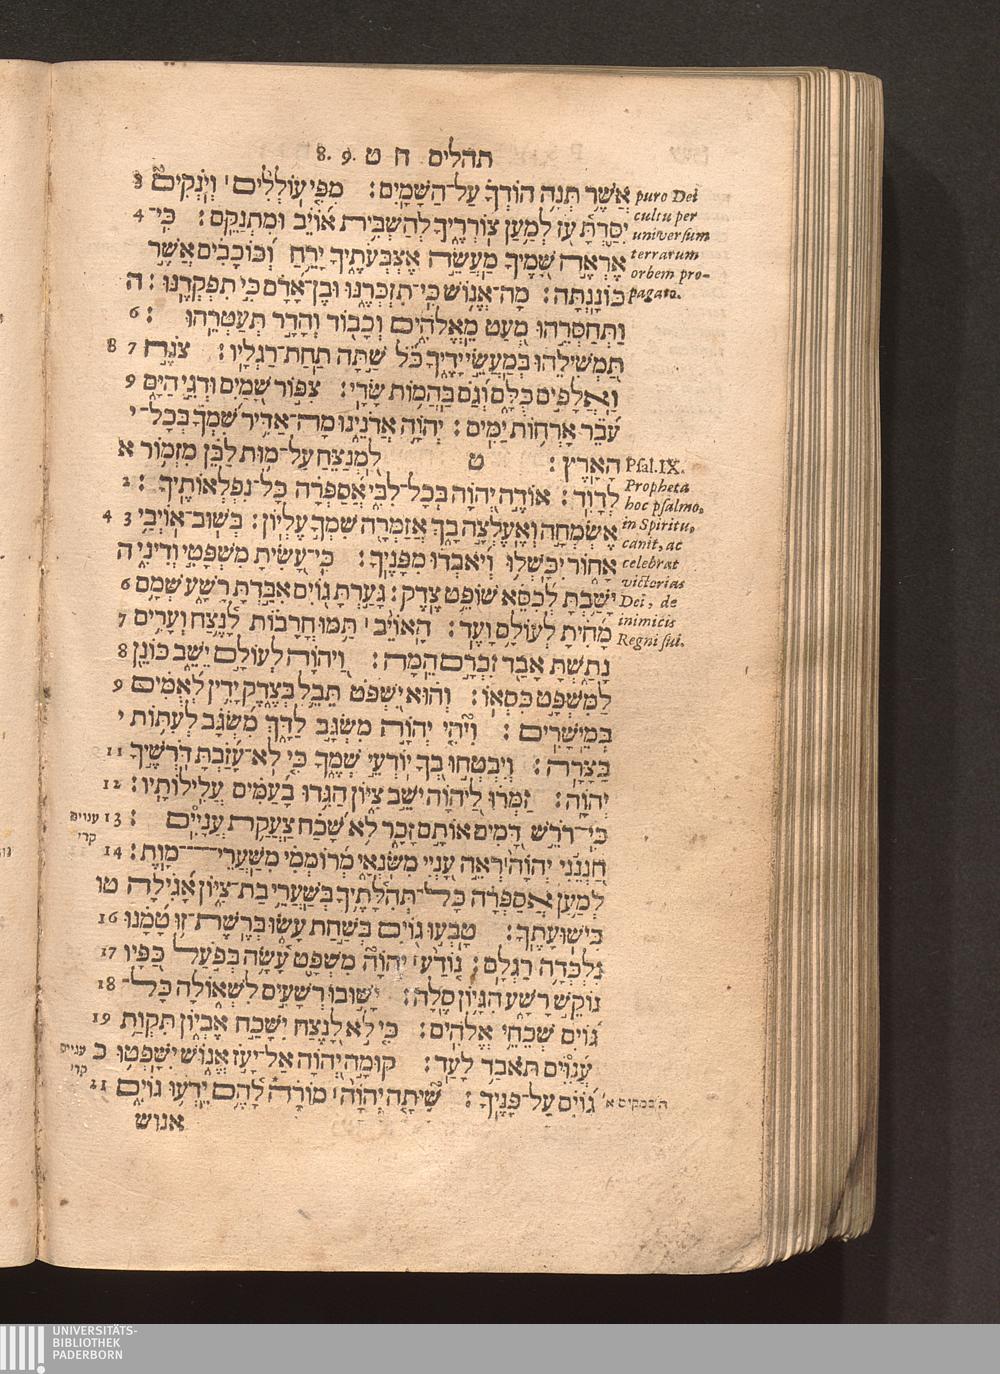 תהלים ח ט 8. 9.
אֲשֶׁר תְּנָה הוֹדְךָ עַל־הַשָּׁמָיִם: מִפִּי עוֹלְלִים וְיֹנְקִים 3
יִסַּדְתָּ עֹז לְמַעַן צוֹרְרֶיךָ לְהַשְׁבִּית אוֹיֵב וּמִתְנַקֵּם: כִּי־ 4
אֶרְאֶה שָׁמֶיךָ מַעֲשֵׂה אֶצְבְּעֹתֶיךָ יָרֵחַ וְכוֹכָבִים אֲשֶׁר
כּוֹנָנְתָּה: מָה־אֱנוֹשׁ כִּי־תִזְכְּרֶנּוּ וּבֶן־אָדָם כִּי תִפְקְדֶנּוּ: ה
וַתְּחַסְּרֵהוּ מְּעַט מֵאֱלֹהִים וְכָבוֹד וְהָדָר תְּעַטְּרֵהוּ: 6
תַּמְשִׁילֵהוּ בְּמַעֲשֵׂי יָדֶיךָ כֹּל שַׁתָּה תַחַת־רַגְלָיו: צֹנֶה 7 8
וַאֲלָפִים כֻּלָּם וְגַם בַּהֲמוֹת שָׂדָי: צִפּוֹר שָׁמַיִם וּדְגֵי הַיָּם 9
עֹבֵר אָרְחוֹת יַמִּים: יְהוָֹה אֲדֹנֵינוּ מָה־אַדִּיר שִׁמְךָ בְּכָל־ י
הָאָרֶץ: ט לַמְנַצֵּחַ עַל־מוּת לַבֵּן מִזְמוֹר א
לְדָוִד: אוֹדֶה יְהוָֹה בְּכָל־לִבִּי אֲסַפְּרָה כָּל־נִפְלְאוֹתֶיךָ: 2
אֶשְׂמְחָה וְאֶעֶלְצָה בָךְ אֲזַמְּרָה שִׁמְךָ עֶלְיוֹן: בְּשׁוּב־אוֹיְבַי 3 4
אָחוֹר יִכָּשְׁלוּ וְיֹאבְדוּ מִפָּנֶיךָ: כִּי־עָשִׂיתָ מִשְׁפָּטִי וְדִינִי ה
יָשַׁבְתָּ לְכִסֵּא שׁוֹפֵט צֶדֶק: גָּעַרְתָּ גוֹיִם אִבַּדְתָּ רָשָׁע שְׁמָם 6
מָחִיתָ לְעוֹלָם וָעֶד: הָאוֹיֵב תַּמּוּ חֳרָבוֹת לָנֶצַח וְעָרִים 7
נָתַשְׁתָּ אָבַד זִכְרָם הֵמָּה: וַיהוָֹה לְעוֹלָם יֵשֵׁב כּוֹנֵן 8
לַמִּשְׁפָּט כִּסְאוֹ: וְהוּא יִשְׁפֹּט תֵּבֵל בְּצֶדֶק יָדִין לְאֻמִּים 9
בְּמֵישָׁרִים: וִיהִי יְהוָֹה מִשְׂגָּב לַדָּךְ מִשְׂגָּב לְעִתּוֹת י
בַּצָּרָה: וְיִבְטְחוּ בְךָ יוֹדְעֵי שְׁמֶךָ כִּי לֹא־עָזַבְתָּ דֹרְשֶׁיךָ 11
יְהוָֹה: זַמְּרוּ לַיהוָֹה יֹשֵׁב צִיּוֹן הַגִּידוּ בָעַמִּים עֲלִילוֹתָיו: 12
כִּי־דֹרֵשׁ דָּמִים אוֹתָם זָכָר לֹא שָׁכַח צַעֲקַת עֲנָיִים: 13
חָנְנֵנִי יְהוָֹה רְאֵה עָנְיִי מִשֹּׂנְאָי מְרוֹמְמִי מִשַּׁעֲרֵי־מָוֶת: 14
לְמַעַן אֲסַפְּרָה כָּל־תְּהִלָּתֶיךָ בְּשַׁעֲרֵי בַת־צִיּוֹן אָגִילָה טו
בִּישׁוּעָתֶךָ: טָבְעוּ גוֹיִם בְּשַׁחַת עָשׂוּ בְּרֶשֶׁת־זוּ טָמָנוּ 16
נִלְכְּדָה רַגְלָם: נוֹדַע יְהוָֹה מִשְׁפָּט עָשָׂה בְּפֹעַל כַּפָּיו 17
נוֹקֵשׁ רָשָׁע הִגָּיוֹן סֶלָה: יָשׁוּבוּ רְשָׁעִים לִשְׁאוֹלָה כָּל־ 18
גּוֹיִם שְׁכֵחֵי אֱלֹהִים: כִּי לֹא לָנֶצַח יִשָּׁכַח אֶבְיוֹן תִּקְוַת 19
עֲנָוִים תֹּאבַד לָעַד: קוּמָה יְהוָֹה אַל־יָעֹז אֱנוֹשׁ יִשָּׁפְטוּ כ
גוֹיִם עַל־פָּנֶיךָ: שִׁיתָה יְהוָֹה מוֹרָה לָהֶם יֵדְעוּ גוֹיִם 21
אנוש
puro Dei
cultu per
universum
terrarum
orbem pro-
pagato.
Psal. IX.
Propheta
hoc psalmo,
in Spiritu,
canit, ac
celebrat
victorias
Dei, de
inimicis
Regni sui.
ענוים
קרי
עניים
קרי
ה׳ במקום א׳
UNIVERSITÄTS-
BIBLIOTHEK
PADERBORN